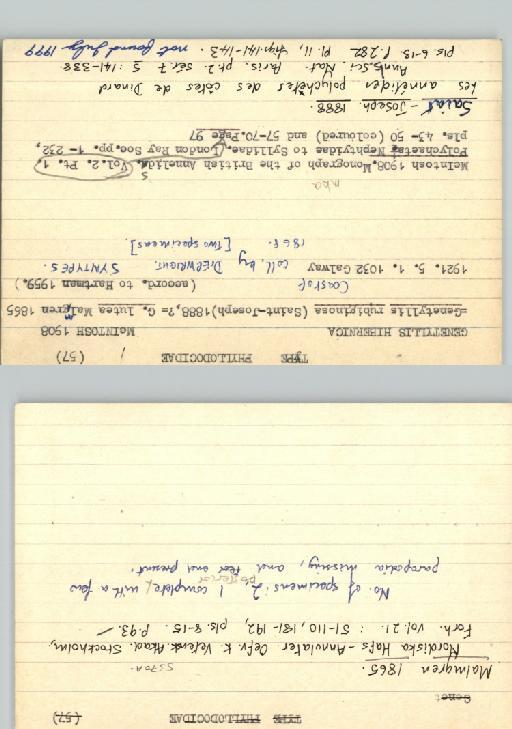 TYPE PHYLLODOCIDAE (57)
GENETYLLIS HIBERNICA McINTOSH 1908
=Genetyllis rubiginosa (Saint-Joseph)1888,?= G. lutea Malmgren 1865
(accord. to Hartman 1959.)
1921. 5. 1. 1032 Galway Coast of coll. by Dr E.P. WRIGHT. SYNTYPES.
1868. [Two specimens]
McIntosh 1908.Monograph of the British Annelids. Vol.2. Pt. 1.
Polychaeta; Nephtyidae to Syllidae. London Ray Soc.pp. 1- 232,
pls. 43- 50 (coloured) and 57-70-Page 97
Saint - Joseph. 1888.
Les annélides polychètes des côtes de Dinard
Ann. Sci. Nat. Paris. pt 2. ser. 7 5 : 141-338
pls 6-13. p. 282 Pl. 11, figs 141-143. not found July 1999
TYPE PHYLLODOCIDAE (57)
Genet
Malmgren 1865. S370A
Nordiska Hafs-Annulater Oefv. K. Vetensk. Akad. Stockholm,
Forh. vol. 21. : 51-110, 181-192, pls. 8-15. P.93.
No. of specimens: 2, 1 complete, with a few posterior
parapodia missing, and head and present.